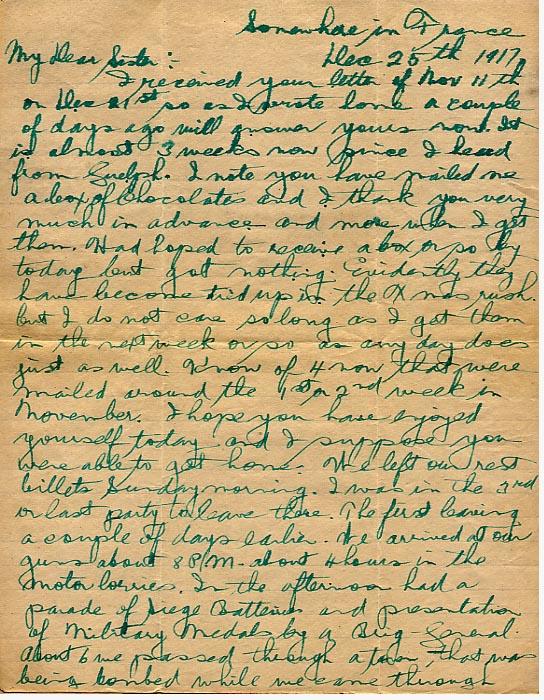 Somewhere in France
Dec 25th 1917,
My Dear Sister:-
I received your letter of Nov 11th
on Dec 21st so as I wrote home a couple
of days ago will answer yours now. It
is almost 3 weeks now since I heard
from Guelph. I note you have mailed me
a box of Chocolates and I thank you very
much in advance and more when I get
them. Had hoped to receive a box or so by
today but got nothing. Evidently they
have become tied up in the Xmas rush.
but I do not care so long as I get them
in the next week or so as any day does
just as well. Know of 4 now that were
mailed around the 1st or 2nd week in
November. I hope you have enjoyed
yourself today and I suppose you
were able to get home. We left our rest
billets Sunday morning. I was in the 3rd
or last party to leave there. The first leaving
a couple of days earlier. We arrived at our
guns about 8 P.M. about 4 hours in the
motor lorries. In the afternoon had a
parade of Siege Batteries and presentation
of Military Medals by a Brig-General.
about 6 we passed through a town, that was
being bombed while we came through